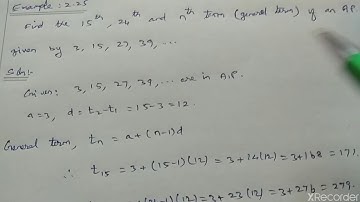 Example: 2.25
Find the 15th, 24th and nth term (general term) of an A.P.
given by 3, 15, 27, 39, ...
Soln:
Given: 3, 15, 27, 39, ... are in A.P.
a=3, d=t2-t1=15-3=12.
General term, tn = a+(n-1)d
∴ t15 = 3+(15-1)(12)=3+14(12)=3+168=171.
-1)(12)=3+23(12)=3+276=279.
XRecorder